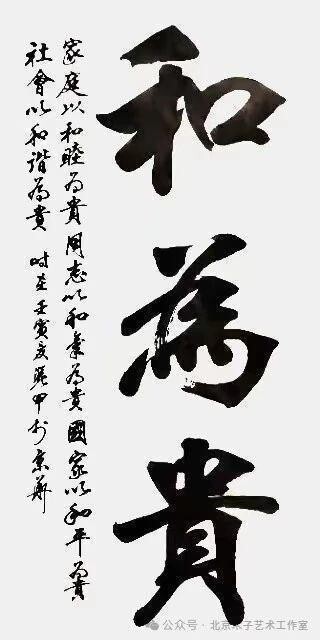 和為貴
家庭以和睦為貴同志以和氣為貴國家以和平為貴
社會以和諧為貴 时在壬寅友張甲於京華
公众号 · 北京木子艺术工作室